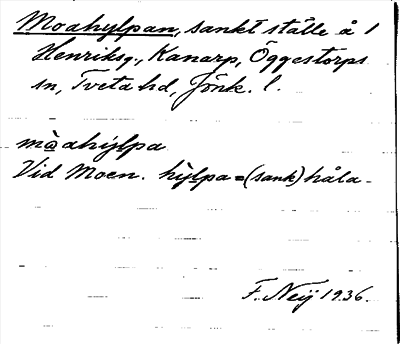 Moahylpan, sankt ställe å 1
Henriksg., Kanarp, Öggestorps
sn, Tveta hd, Jönk. l.
mòahy̆lpa
Vid Moen. hy̆lpa = (sank) håla.
F. Neij 1936.